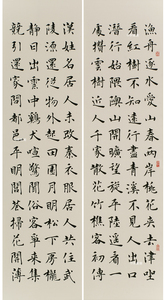 漁舟逐水愛山春兩岸桃花夾去津坐
看紅樹不知遠行盡青溪不見人山口
潛行始隈隩山開曠望旋平陸遙看一
處攢雲樹近入千家散花竹樵客初傳
漢姓名居人未改秦衣服居人共住武
陵源還從物外起田園月明松下房櫳
靜日出雲中雞犬喧驚聞俗客爭來集
競引還家問都邑平明閭巷掃花開薄